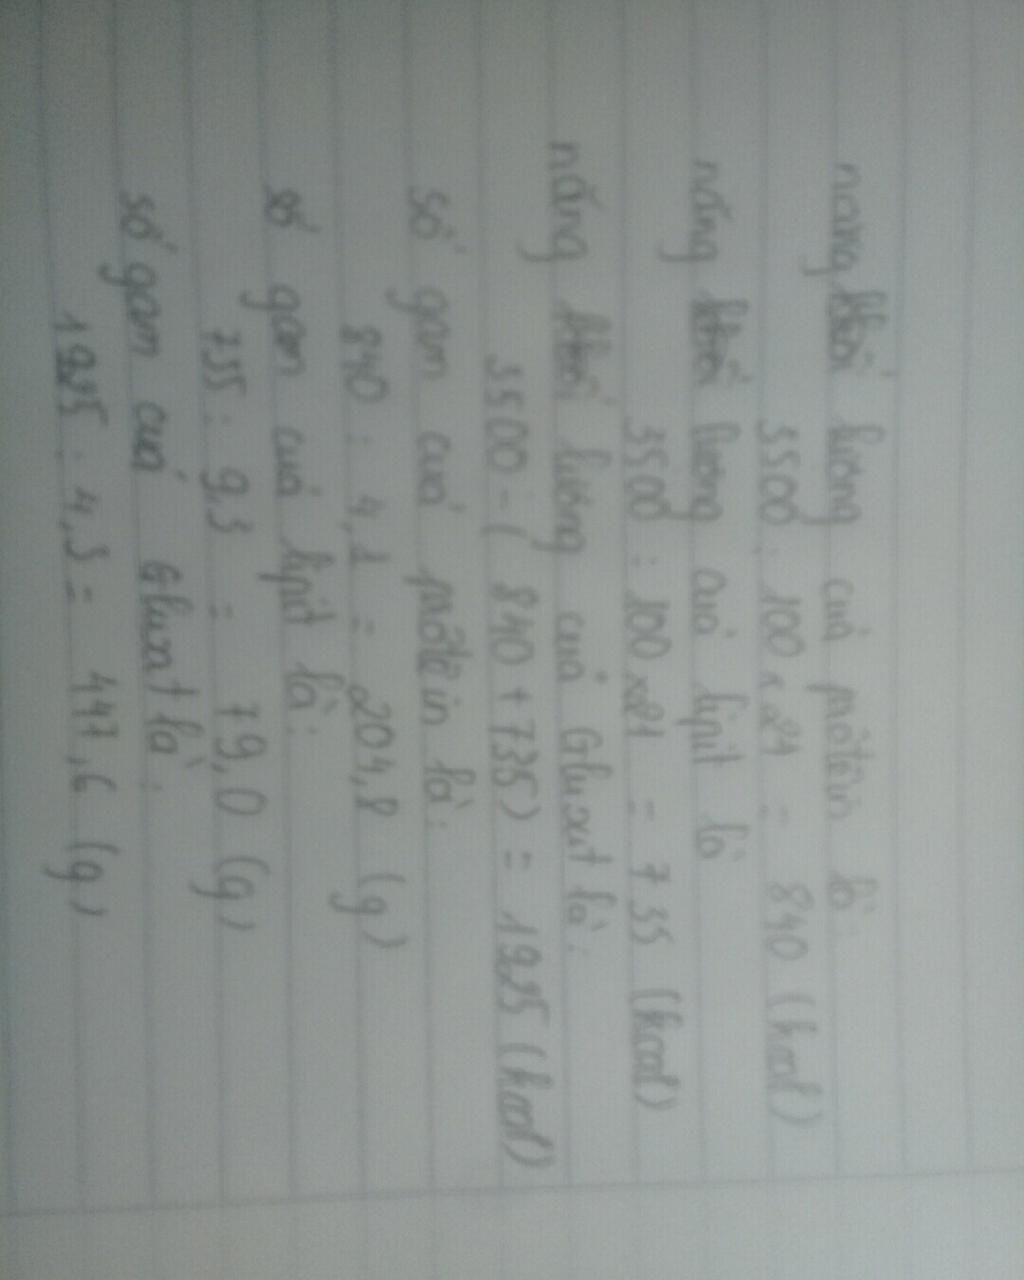 năng lượng của prôtêin là:
3500 : 100 x 24 = 840 (kcal)
năng lượng của lipit là
3500 : 100 x 21 = 735 (kcal)
năng lượng của Gluxit là:
3500 - ( 840 + 735) = 1925 (kcal)
số gam của prôtêin là:
840 : 4,1 = 204,8 (g)
số gam của lipit là:
735 : 9,3 = 79,0 (g)
số gam của Gluxit là:
1925 : 4,3 = 447,6 (g)